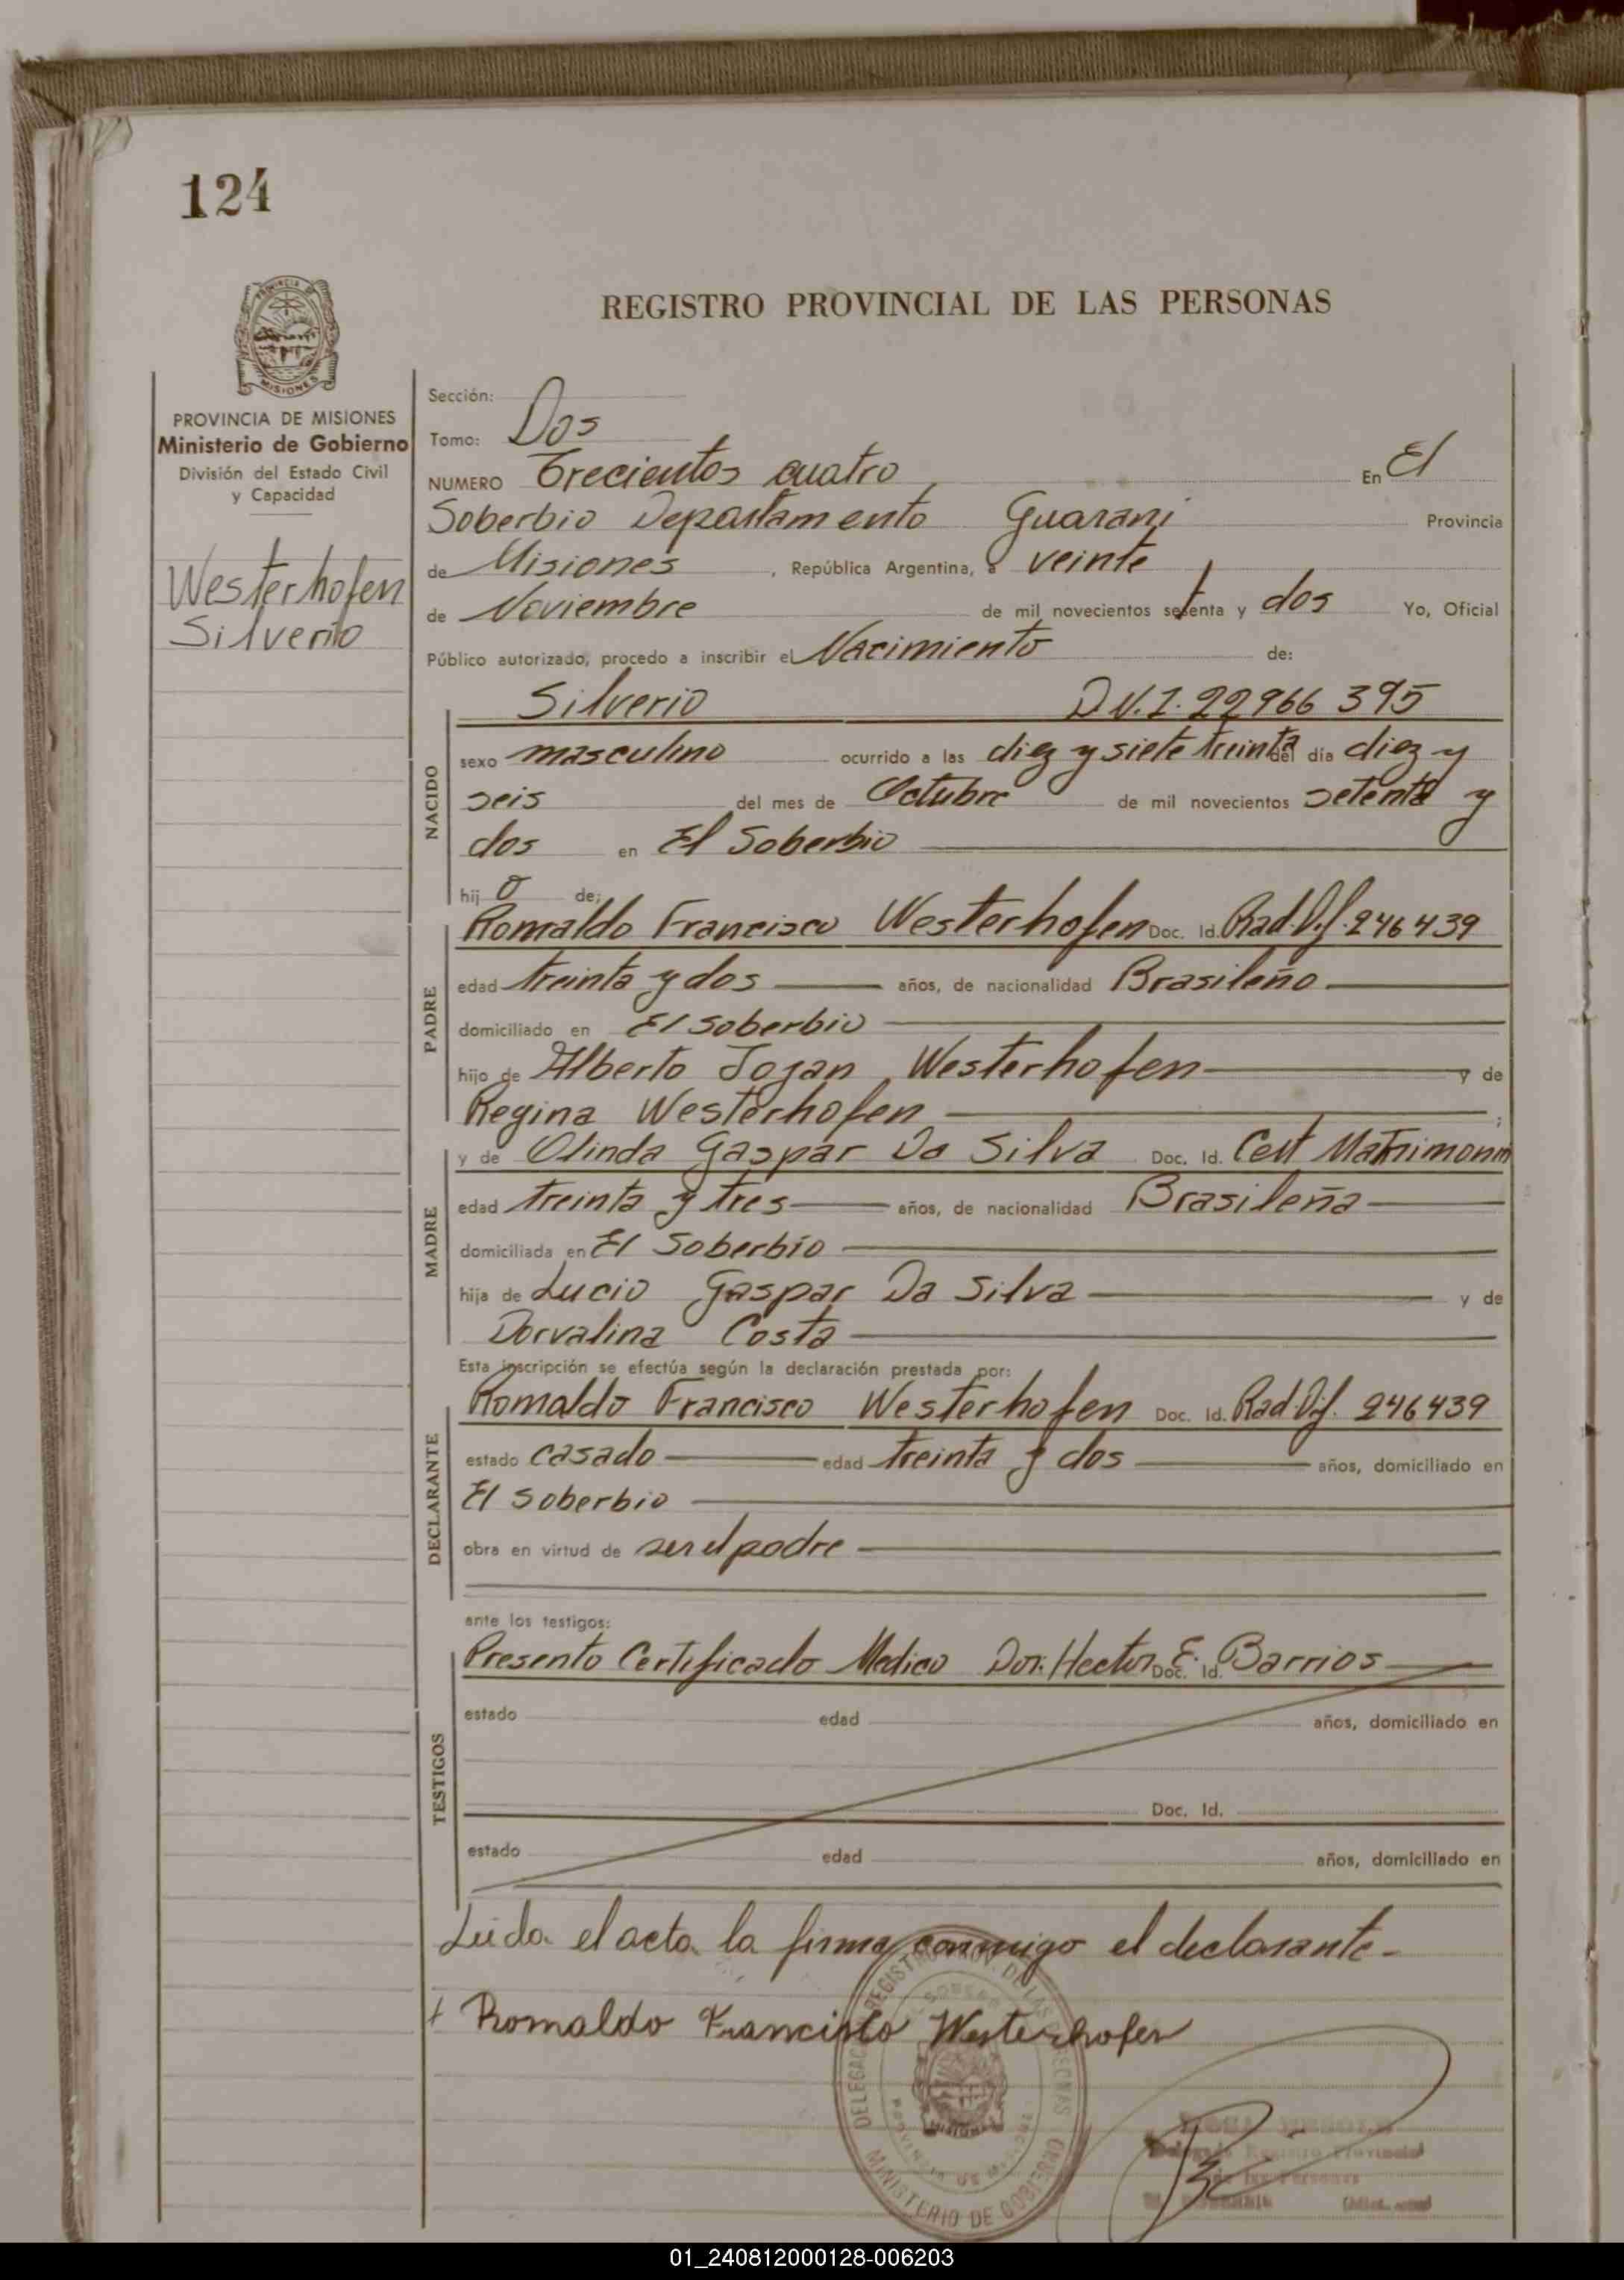 124
REGISTRO PROVINCIAL DE LAS PERSONAS
PROVINCIA DE MISIONES
Ministerio de Gobierno
División del Estado Civil
y Capacidad
Westerhofen
Silverio
Sección:
Tomo: Dos
NUMERO Trecientos cuatro En El
Soberbio Departamento Guarani Provincia
de Misiones, República Argentina, a veinte
de Noviembre de mil novecientos setenta y dos Yo, Oficial
Público autorizado, procedo a inscribir el Nacimiento de:
NACIDO
Silverio D.N.I. 22966 395
sexo masculino ocurrido a las diez y siete treinta del día diez y
seis del mes de Octubre de mil novecientos setenta y
dos en El Soberbio
hij o de;
PADRE
Romaldo Francisco Westerhofen Doc. Id. Rad. Dif. 246439
edad treinta y dos años, de nacionalidad Brasileño
domiciliado en El Soberbio
hijo de Alberto Jojan Westerhofen y de
Regina Westerhofen ;
MADRE
y de Olinda Gaspar Da Silva Doc. Id. Cert Matrimonio
edad treinta y tres años, de nacionalidad Brasileña
domiciliada en El Soberbio
hija de Lucio Gaspar Da Silva y de
Dorvalina Costa
Esta inscripción se efectúa según la declaración prestada por:
DECLARANTE
Romaldo Francisco Westerhofen Doc. Id. Rad. Dif. 246439
estado casado edad treinta y dos años, domiciliado en
El Soberbio
obra en virtud de ser el padre
ante los testigos:
TESTIGOS
Presento Certificado Medico Dor. Hector E. Barrios Doc. Id.
estado edad años, domiciliado en
Doc. Id.
estado edad años, domiciliado en
Leida el acta la firma conmigo el declarante-
Romaldo Francisco Westerhofen
MINISTERIO DE GOBIERNO
MISIONES
Registro Provincial
de las Personas
01_240812000128-006203